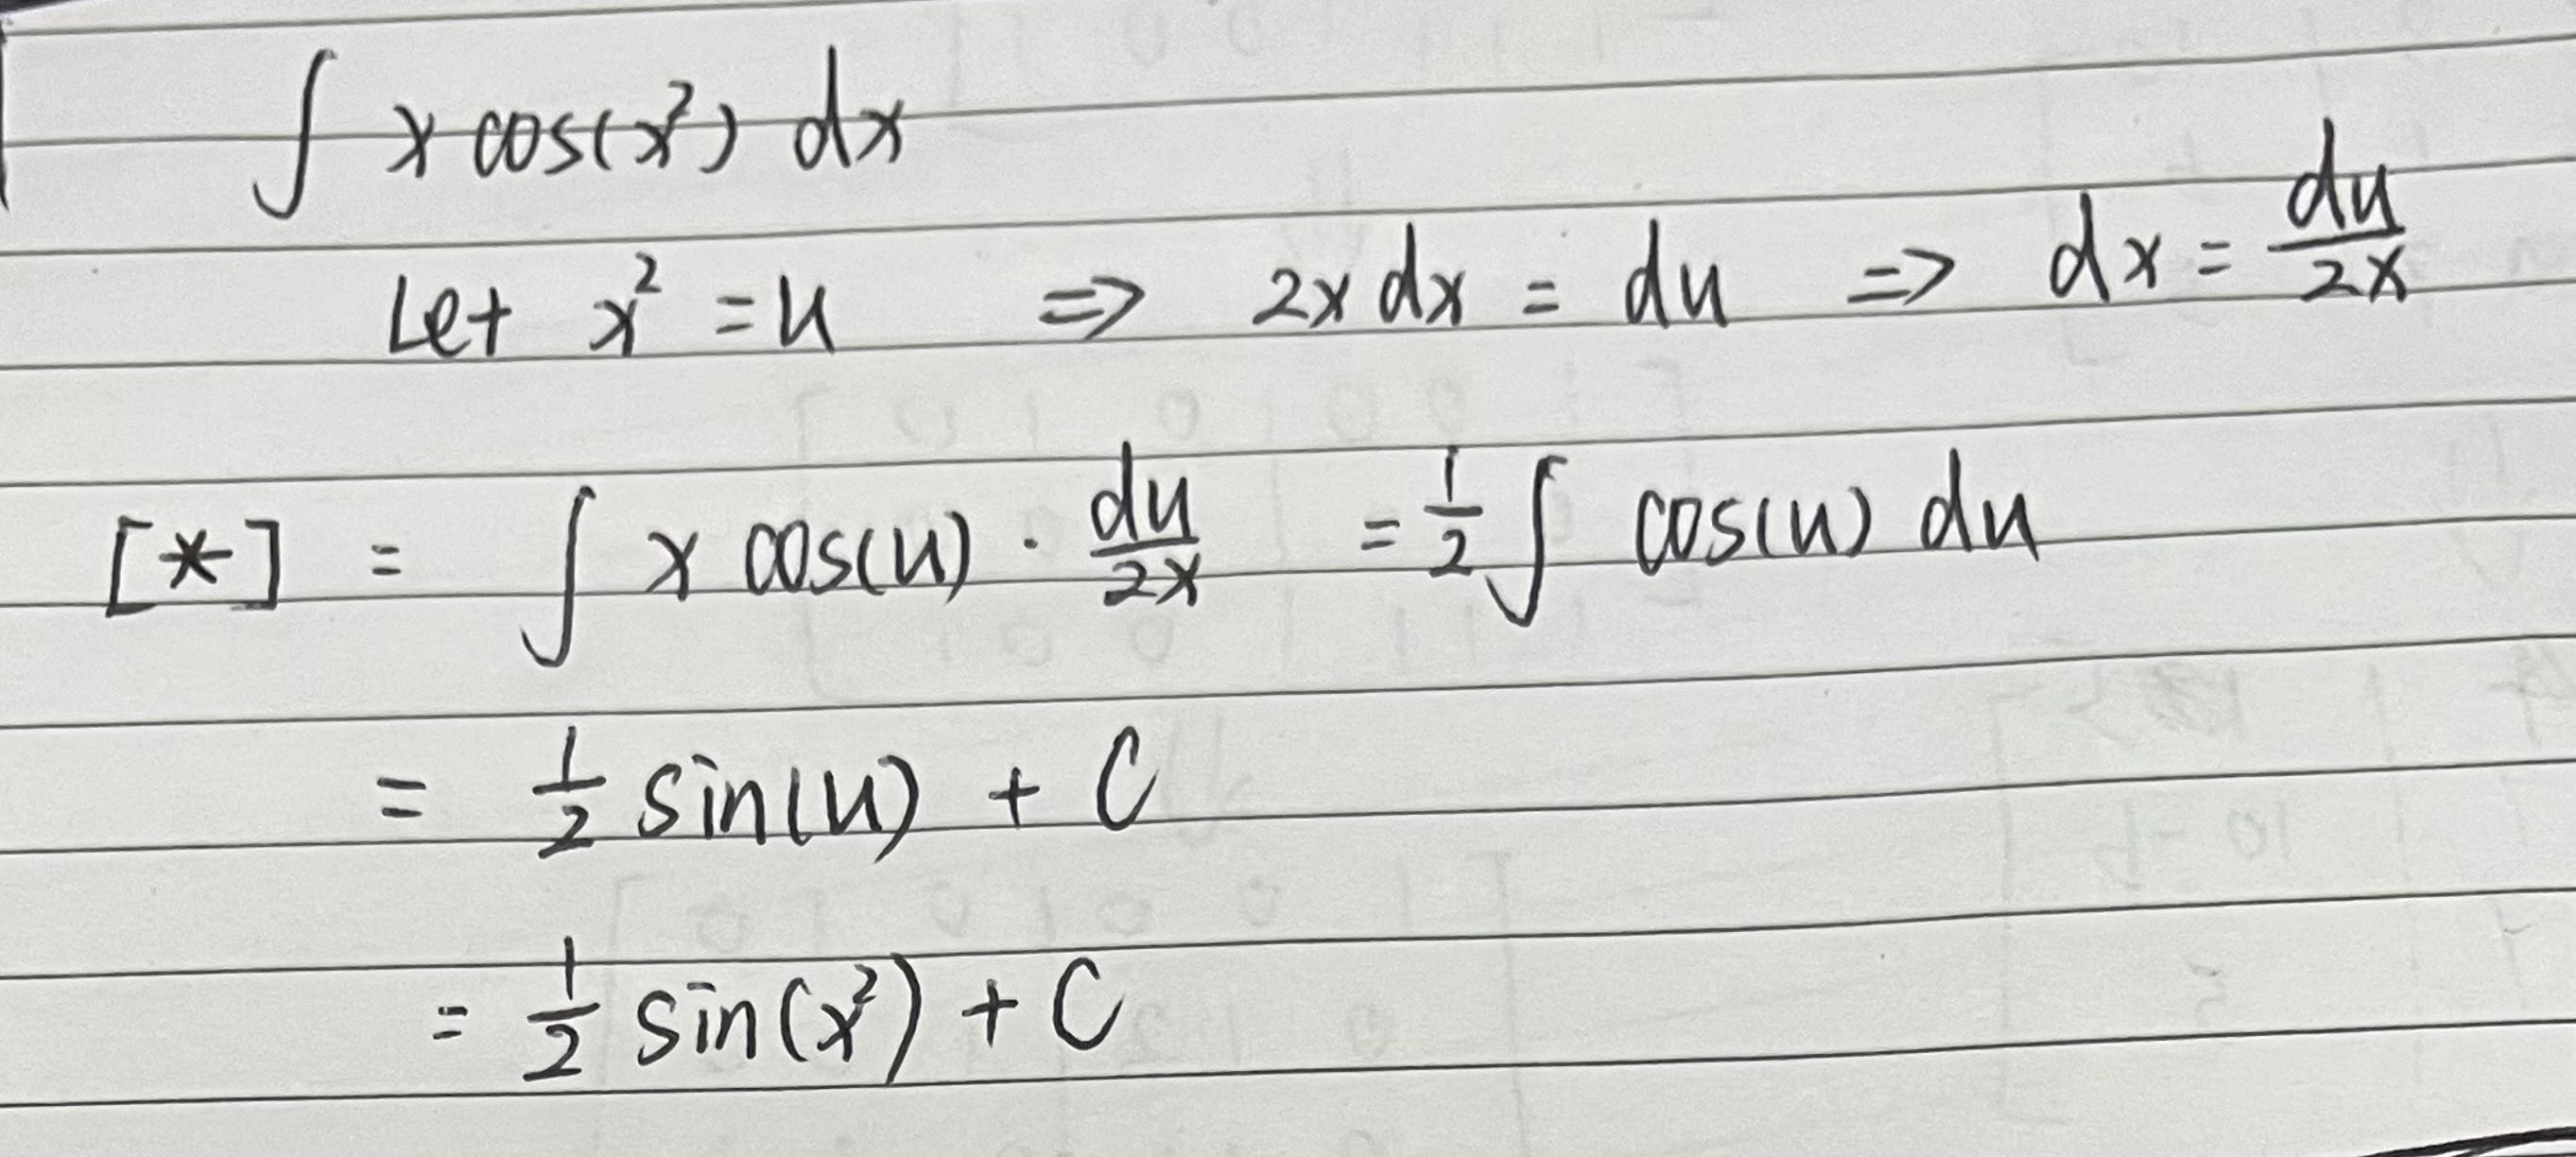 ∫ x cos(x²) dx
Let x² = u ⇒ 2x dx = du ⇒ dx = du/2x
[*] = ∫ x cos(u) · du/2x = 1/2 ∫ cos(u) du
= 1/2 sin(u) + C
= 1/2 sin(x²) + C